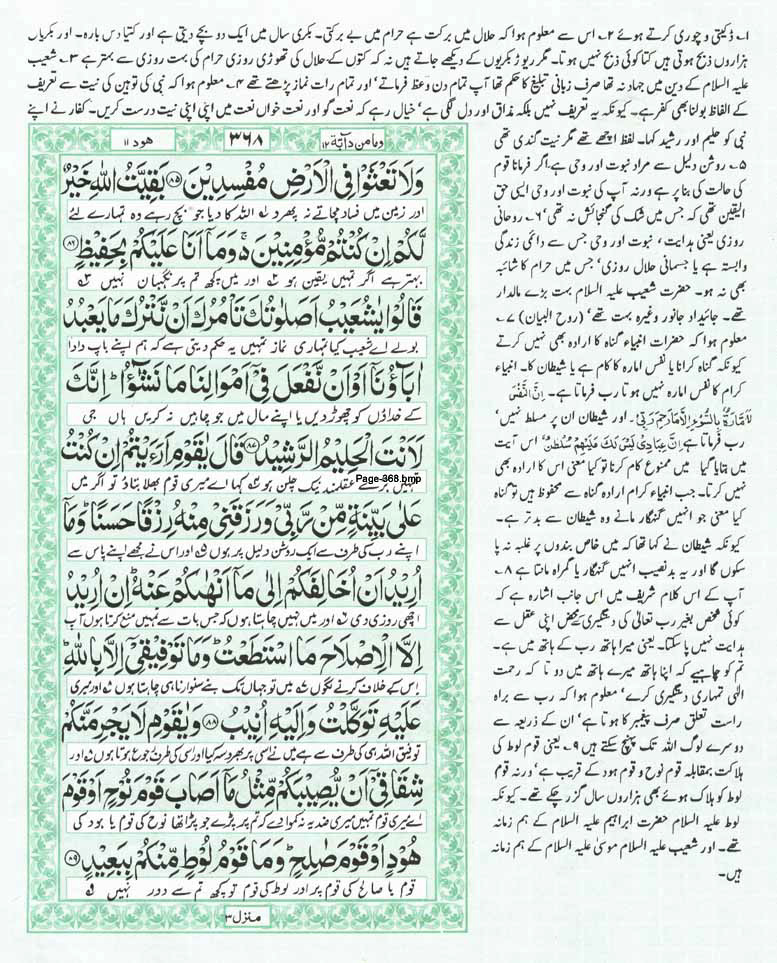 ۱۔ ڈکیتی و چوری کرتے ہوئے ۲۔ اس سے معلوم ہوا کہ حلال میں برکت ہے حرام میں بے برکتی۔ بکری سال میں ایک دو بچے دیتی ہے اور کتیا دس بارہ۔ اور بکریاں
ہزاروں ذبح ہوتی ہیں کتا کوئی ذبح نہیں ہوتا۔ مگر ریوڑ بکریوں کے دیکھے جاتے ہیں نہ کہ کتوں کے حلال کی تھوڑی روزی حرام کی بہت روزی سے بہتر ہے ۳۔ شعیب
علیہ السلام کے دین میں جہاد نہ تھا صرف زبانی تبلیغ کا حکم تھا آپ تمام دن وعظ فرماتے‘ اور تمام رات نماز پڑھتے تھے ۴۔ معلوم ہوا کہ نبی کی توہین کی نیت سے تعریف
کے الفاظ بولنا بھی کفر ہے۔ کیونکہ یہ تعریف نہیں بلکہ مذاق اور دل لگی ہے‘ خیال رہے کہ نعت گو اور نعت خواں نعت میں اپنی اپنی نیت درست کریں۔ کفار نے اپنے
نبی کو حلیم اور رشید کہا۔ لفظ اچھے تھے مگر نیت گندی تھی
۵۔ روشن دلیل سے مراد نبوت اور وحی ہے‘ اگر فرمانا قوم
کی حالت کی بنا پر ہے ورنہ آپ کی نبوت اور وحی ایسی حق
الیقین تھی کہ جس میں شک کی گنجائش نہ تھی‘ ۶۔ روحانی
روزی یعنی ہدایت‘ نبوت اور وحی جس سے دائمی زندگی
وابستہ ہے یا جسمانی حلال روزی‘ جس میں حرام کا شائبہ
بھی نہ ہو۔ حضرت شعیب علیہ السلام بہت بڑے مالدار
تھے۔ جائیداد جانور وغیرہ بہت تھے‘ (روح البیان) ۷۔
معلوم ہوا کہ حضرات انبیاء گناہ کا ارادہ بھی نہیں کرتے
کیونکہ گناہ کرانا یا نفس امارہ کا کام ہے یا شیطان کا۔ انبیاء
کرام کا نفس امارہ نہیں ہوتا رب فرماتا ہے۔ اِنَّ النَّفْسَ
لَاَمَّارَةٌۢ بِالسُّوْٓءِ اِلَّا مَا رَحِمَ رَبِّیْ۔ اور شیطان ان پر مسلط نہیں‘
رب فرماتا ہے اِنَّ عِبَادِیْ لَیْسَ لَکَ عَلَیْہِمْ سُلْطٰنٌ‘ اس آیت
میں بتایا گیا میں ممنوع کام کرنا تو کیا معنی اس کا ارادہ بھی
نہیں کرتا۔ جب انبیاء کرام ارادہ گناہ سے محفوظ ہیں تو گناہ
کیا معنی جو انہیں گنہگار مانے وہ شیطان سے بدتر ہے۔
کیونکہ شیطان نے کہا تھا کہ میں خاص بندوں پر غلبہ نہ پا
سکوں گا اور یہ بدنصیب انہیں گنہگار یا گمراہ مانتا ہے ۸۔
آپ کے اس کلام شریف میں اس جانب اشارہ ہے کہ
کوئی شخص بغیر رب تعالٰی کی دستگیری محض اپنی عقل سے
ہدایت نہیں پا سکتا۔ یعنی میرا ہاتھ رب کے ہاتھ میں ہے۔
تم کو چاہیے کہ اپنا ہاتھ میرے ہاتھ میں دو تا کہ رحمت
الٰہی تمہاری دستگیری کرے‘ معلوم ہوا کہ رب سے براہ
راست تعلق صرف پیغمبر کا ہوتا ہے‘ ان کے ذریعہ سے
دوسرے لوگ اللہ تک پہنچ سکتے ہیں ۹۔ یعنی قوم لوط کی
ہلاکت بمقابلہ قوم نوح و قوم ہود کے قریب ہے‘ ورنہ قوم
لوط کو ہلاک ہوئے بھی ہزاروں سال گزر چکے تھے۔ کیونکہ
لوط علیہ السلام حضرت ابراہیم علیہ السلام کے ہم زمانہ
تھے۔ اور شعیب علیہ السلام موسیٰ علیہ السلام کے ہم زمانہ
ہیں۔
ومامن دآبۃ ۱۲ ۳۶۸ ھود ۱۱
وَلَا تَعْثَوْا فِی الْاَرْضِ مُفْسِدِیْنَ ﴿۸۵﴾ بَقِیَّتُ اللّٰهِ خَیْرٌ
اور زمین میں فساد مچاتے نہ پھرو ۱؎ اللہ کا دیا جو بچ رہے وہ تمہارے لئے
لَّكُمْ اِنْ كُنْتُمْ مُّؤْمِنِیْنَ ۚ۬ وَمَاۤ اَنَا عَلَیْكُمْ بِحَفِیْظٍ ﴿۸۶﴾
بہتر ہے اگر تمہیں یقین ہو ۲؎ اور میں کچھ تم پر نگہبان نہیں ۳؎
قَالُوْا یٰشُعَیْبُ اَصَلٰوتُكَ تَاْمُرُكَ اَنْ نَّتْرُكَ مَا یَعْبُدُ
بولے اے شعیب کیا تمہاری نماز تمہیں یہ حکم دیتی ہے کہ ہم اپنے باپ دادا
اٰبَآؤُنَاۤ اَوْ اَنْ نَّفْعَلَ فِیْۤ اَمْوَالِنَا مَا نَشٰٓؤُا ؕ اِنَّكَ
کے خداؤں کو چھوڑ دیں یا اپنے مال میں جو چاہیں نہ کریں ہاں جی
لَاَنْتَ الْحَلِیْمُ الرَّشِیْدُ ﴿۸۷﴾ قَالَ یٰقَوْمِ اَرَءَیْتُمْ اِنْ كُنْتُ
تمہیں بڑے عقلمند نیک چلن ہو ۴؎ کہا اے میری قوم بھلا بتاؤ تو اگر میں
Page-368.bmp
عَلٰی بَیِّنَةٍ مِّنْ رَّبِّیْ وَرَزَقَنِیْ مِنْهُ رِزْقًا حَسَنًا ؕ وَمَاۤ
اپنے رب کی طرف سے ایک روشن دلیل پر ہوں ۵؎ اور اس نے مجھے اپنے پاس سے
اُرِیْدُ اَنْ اُخَالِفَكُمْ اِلٰی مَاۤ اَنْهٰىكُمْ عَنْهُ ؕ اِنْ اُرِیْدُ
اچھی روزی دی ۶؎ اور میں نہیں چاہتا ہوں کہ جس بات سے تمہیں منع کرتا ہوں آپ
اِلَّا الْاِصْلَاحَ مَا اسْتَطَعْتُ ؕ وَمَا تَوْفِیْقِیْۤ اِلَّا بِاللّٰهِ ؕ
اس کے خلاف کرنے لگوں ۷؎ میں تو جہاں تک بنے سنوارنا ہی چاہتا ہوں اور میری
عَلَیْهِ تَوَكَّلْتُ وَاِلَیْهِ اُنِیْبُ ﴿۸۸﴾ وَیٰقَوْمِ لَا یَجْرِمَنَّكُمْ
توفیق اللہ ہی کی طرف سے ہے میں نے اسی پر بھروسہ کیا اور اسی کی طرف رجوع ہوتا ہوں ۸؎ اور
شِقَاقِیْۤ اَنْ یُّصِیْبَكُمْ مِّثْلُ مَاۤ اَصَابَ قَوْمَ نُوْحٍ اَوْ قَوْمَ
اے میری قوم تمہیں میری ضد یہ نہ کموا دے کہ تم پر پڑے جو پڑا تھا نوح کی قوم یا ہود کی
هُوْدٍ اَوْ قَوْمَ صٰلِحٍ ؕ وَمَا قَوْمُ لُوْطٍ مِّنْكُمْ بِبَعِیْدٍ ﴿۸۹﴾
قوم یا صالح کی قوم پر اور لوط کی قوم تو کچھ تم سے دور نہیں ۹؎
منزل ۳